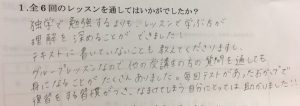 1. 全6回のレッスンを通してはいかがでしたか?
独学で勉強するよりもレッスンで学ぶ方が
理解を深めることができました!
テキストに書いていないことも教えてくださりますし、
グループレッスンなので他の受講する方の質問を通しても
身になることがたくさんありました。毎回テストがあったおかげで
復習をする習慣がつき、なまけてしまう自分にとっては、助かりました!!